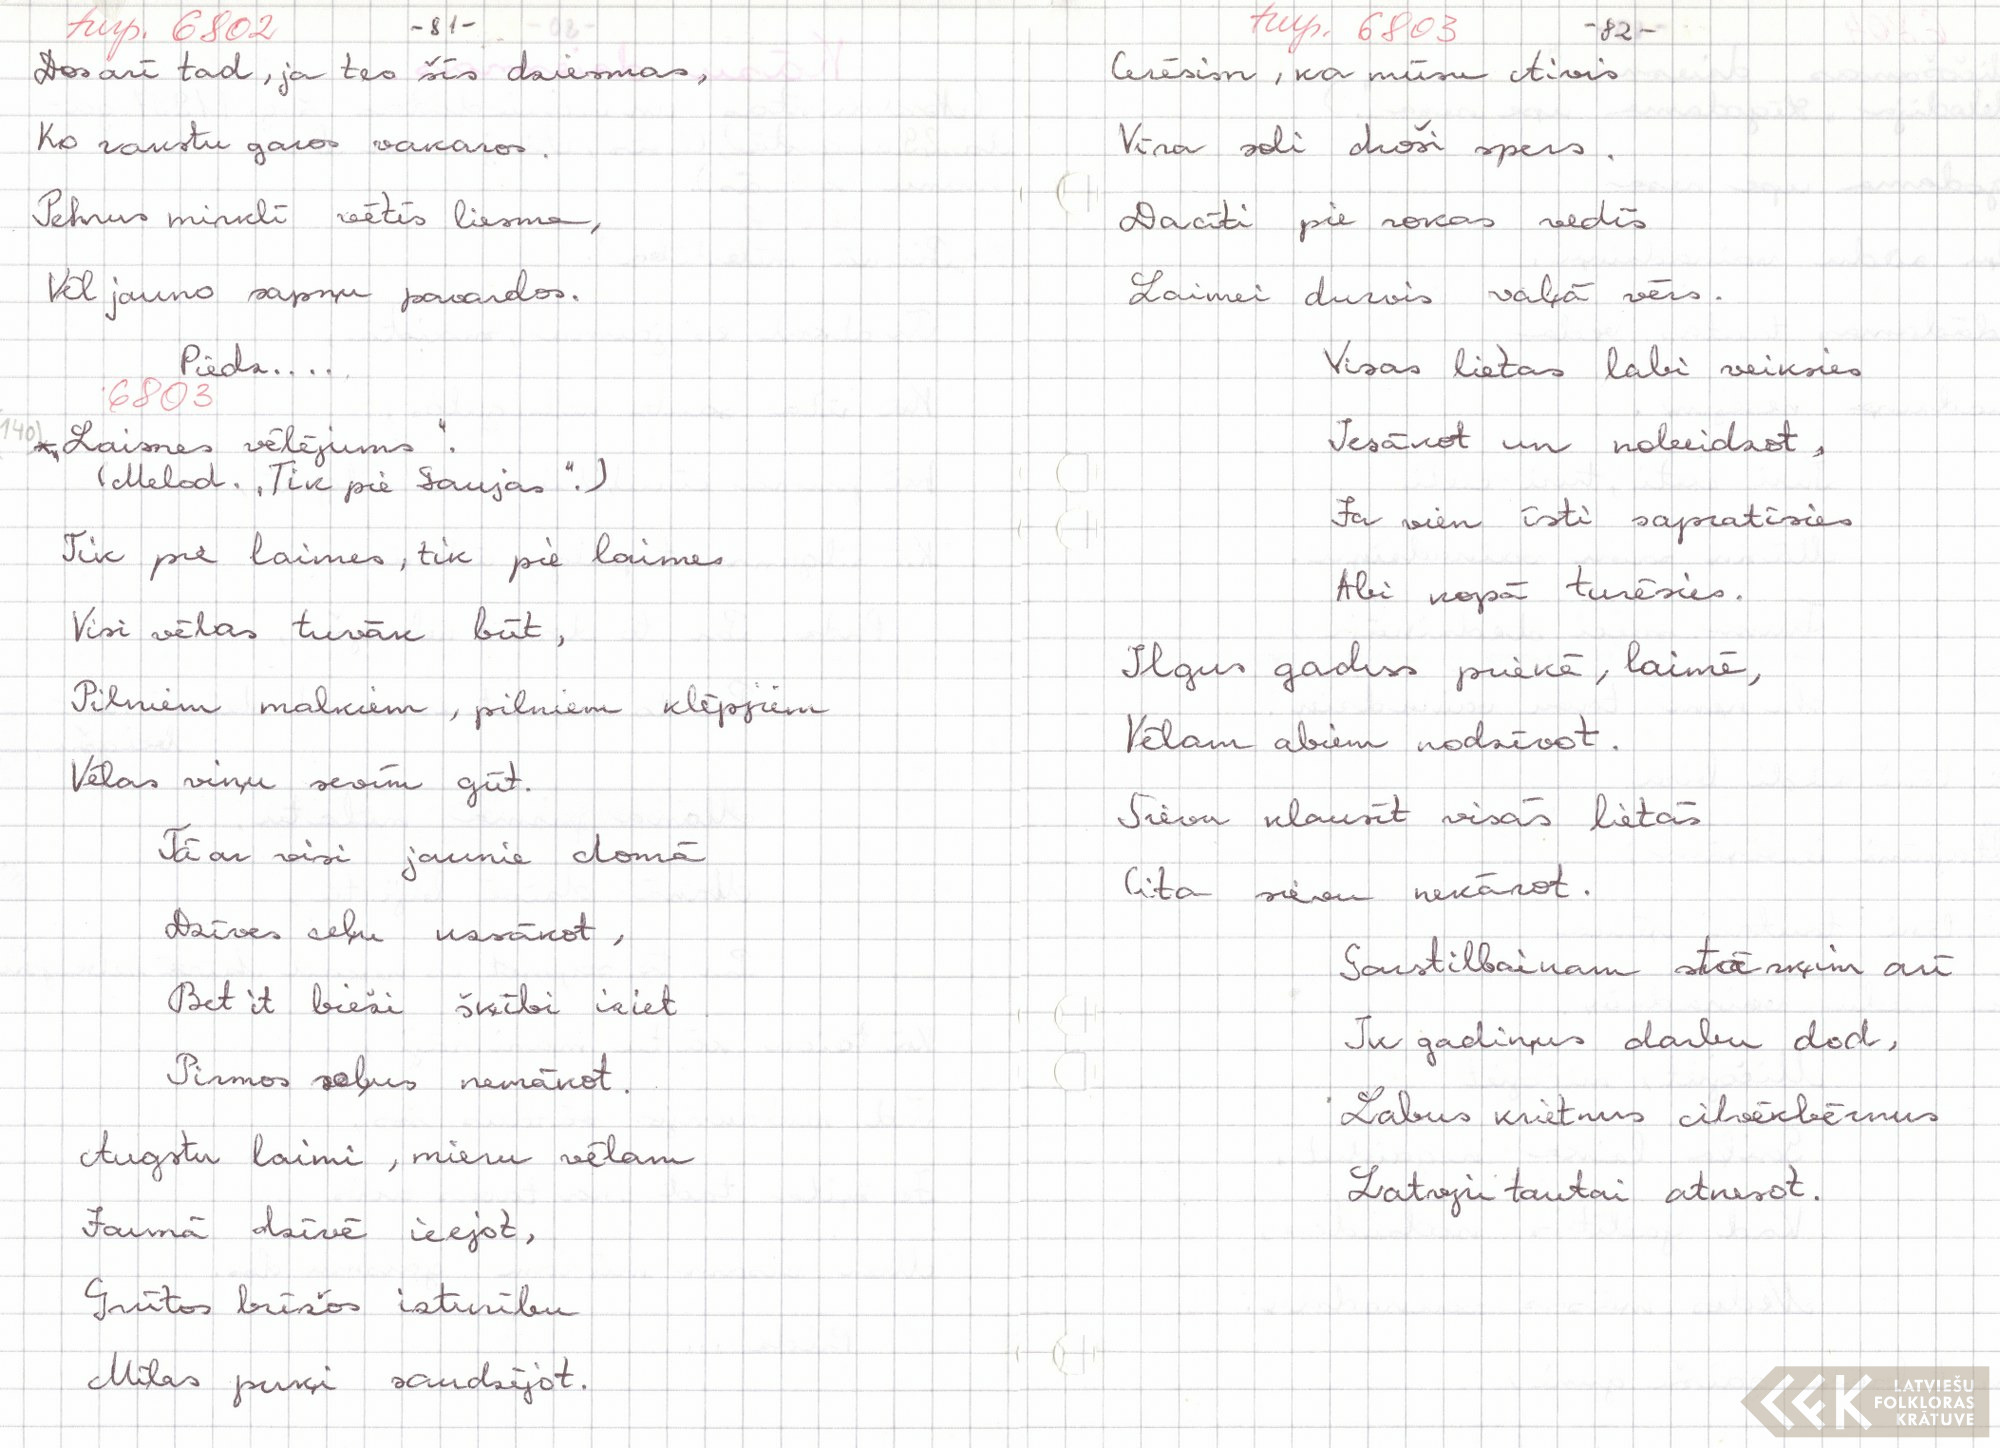 turp. 6802
-81-
Dosarī tad, ja teo šīs dziesmas,
Ko rakstu garos vakaros.
Pelnus mirklī vētīs liesma,
Vēl jauno sapņu pavardos.
Piedz....
6803
140)
„Laimes vēlējums".
(Melod. „Tik pie Gaujas".)
Tik pie laimes, tik pie laimes
Visi vēlas tuvāk būt,
Pilniem malkiem, pilniem klēpjiem
Vēlas viņu sevīm gūt.
Tā ar visi jaunie domā
Dzīves ceļu uzsākot,
Bet it bieži šķībi iziet
Pirmos soļus nemākot.
Augstu laimi, mieru vēlam
Jaunā dzīvē ieejot,
Grūtos brīžos izturību
Mīlas puķi saudzējot.
turp. 6803
-82-
Cerēsim, ka mūsu Aivis
Vīra soli droši spers.
Dacīti pie rokas vedīs
Laimei durvis vaļā vērs.
Visas lietas labi veiksies
Iesākot un nobeidzot,
Ja vien īsti sapratīsies
Abi kopā turēsies.
Ilgus gadus priekā, laimē,
Vēlam abiem nodzīvot.
Sievu klausīt visās lietās
Cita sievu nekārot.
Garstilbainam stārķim arī
Ik gadiņus darbu dod,
Labus krietnus cilvēkbērnus
Latvju tautai atnesot.
LATVIEŠU
FOLKLORAS
KRĀTUVE